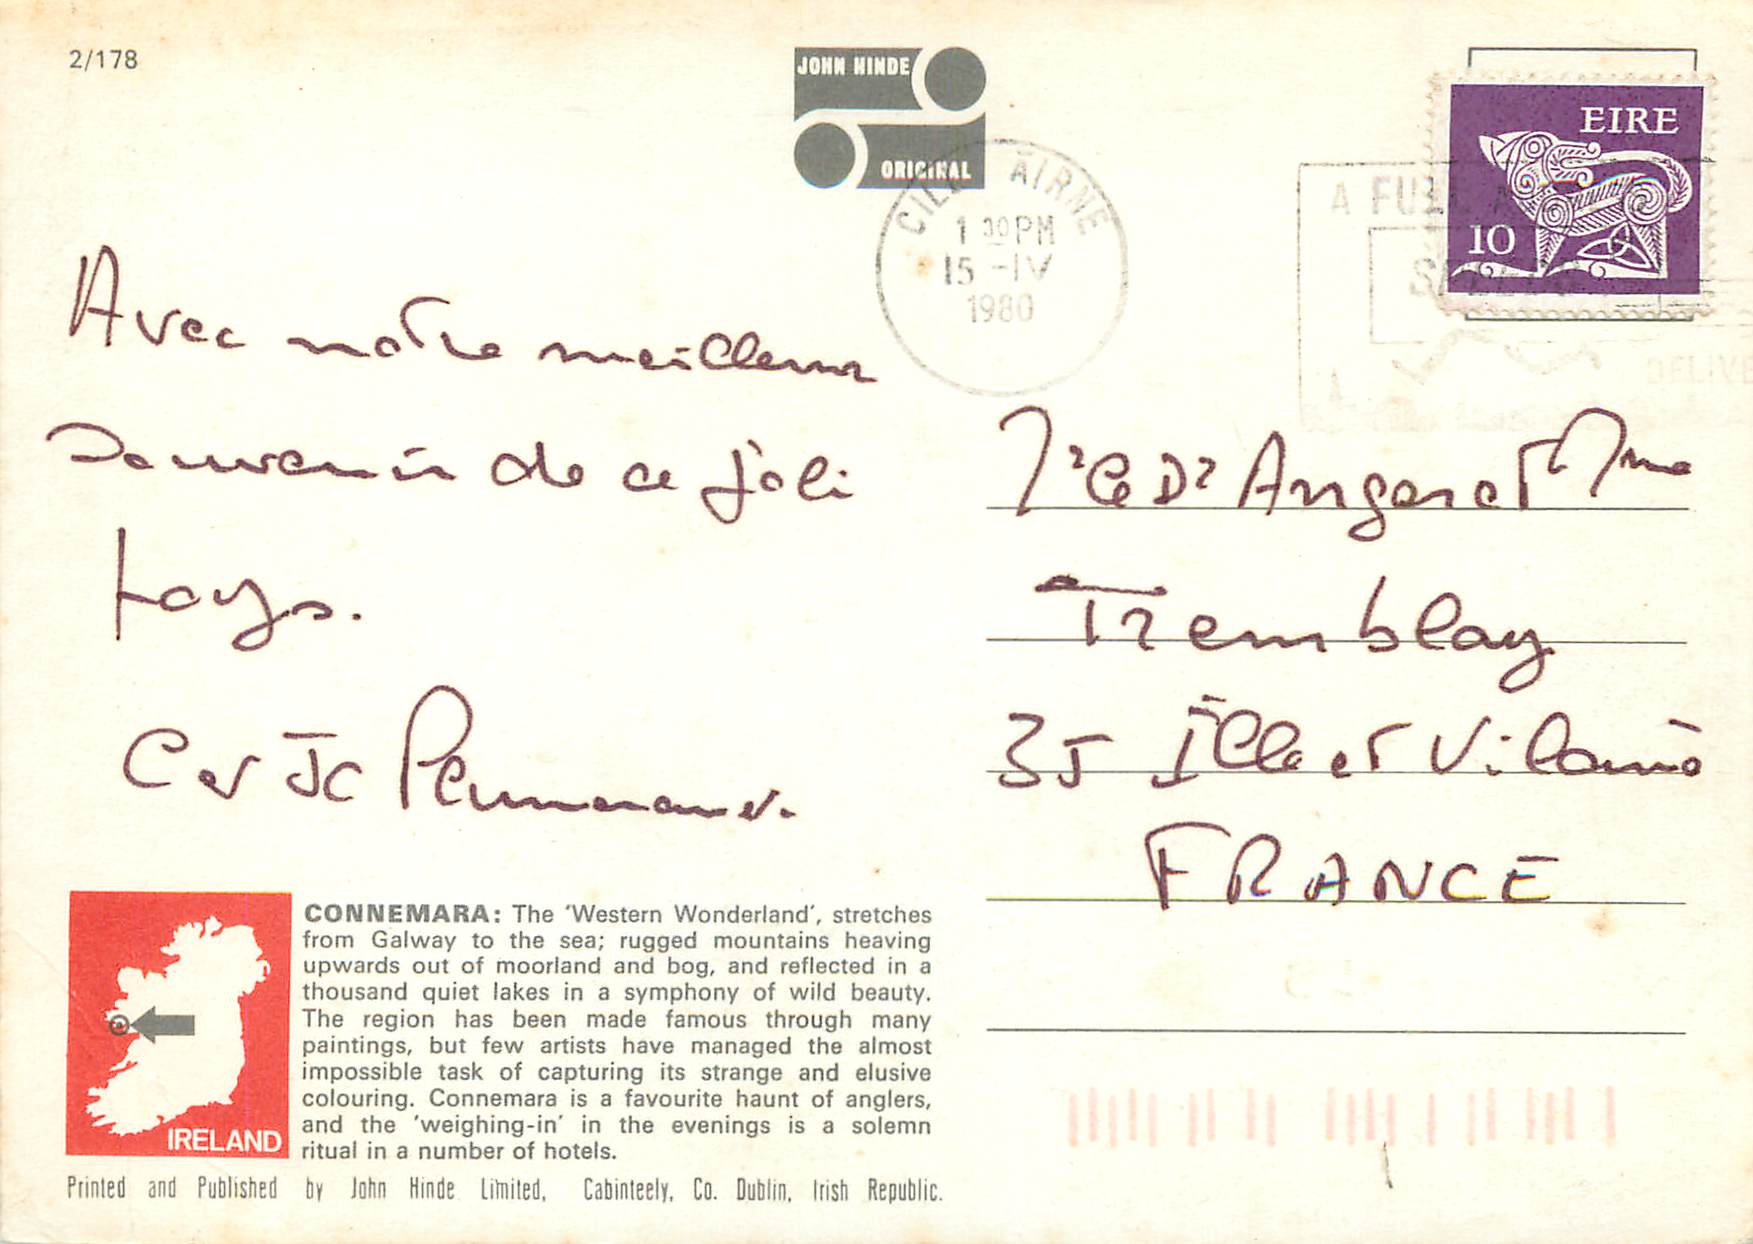 2/178
JOHN HINDE
ORIGINAL
CILL AIRNE
1 30 PM
15 -IV
1980
EIRE
10
A FULL
DELIVE
Avec notre meilleur
Souvenir de ce joli
pays.
C et JC
Dr Angare et Mme
Tremblay
35 Ille et Vilaine
FRANCE
CONNEMARA: The 'Western Wonderland', stretches
from Galway to the sea; rugged mountains heaving
upwards out of moorland and bog, and reflected in a
thousand quiet lakes in a symphony of wild beauty.
The region has been made famous through many
paintings, but few artists have managed the almost
impossible task of capturing its strange and elusive
colouring. Connemara is a favourite haunt of anglers,
and the 'weighing-in' in the evenings is a solemn
ritual in a number of hotels.
IRELAND
Printed and Published by John Hinde Limited, Cabinteely, Co. Dublin, Irish Republic.